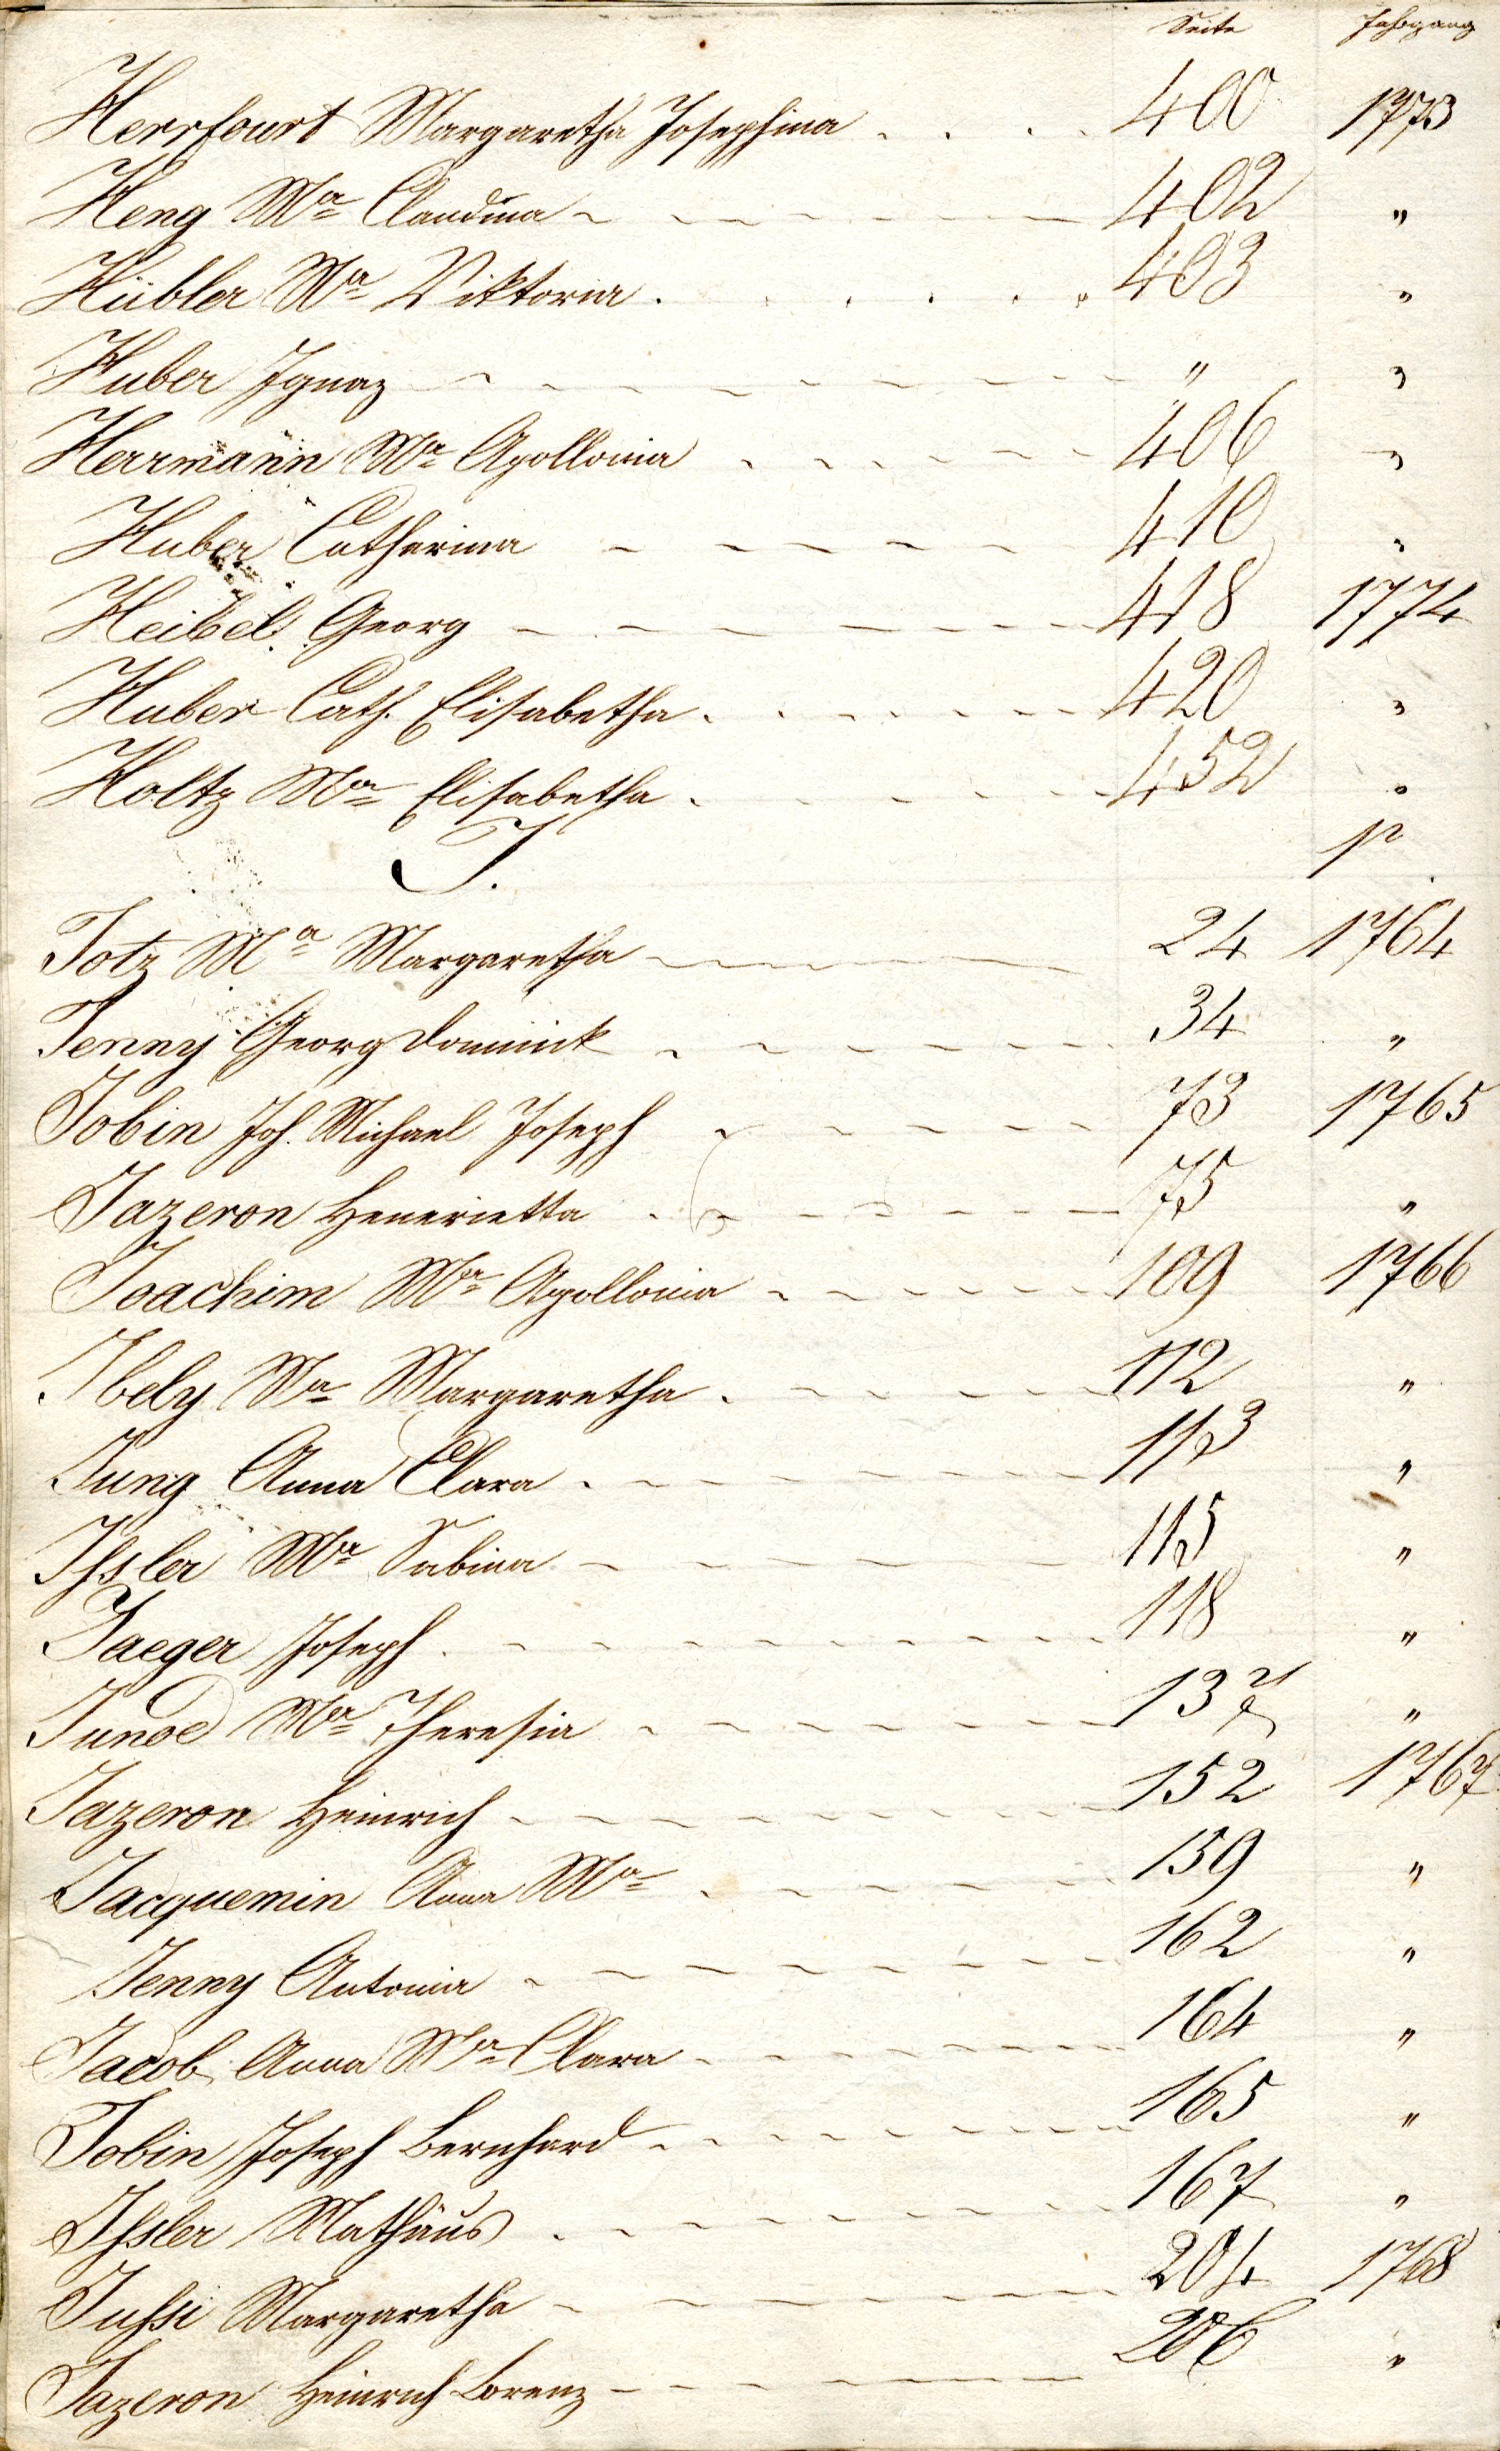 Seite Jahrgang
Herrfourt Margaretha Josephina . . . . 400 1773
Heng Mª Claudina 402 "
Hübler Mª Viktoria . . . . . . 403 "
Huber Ignaz " "
Herrmann Mª Apollonia 406 "
Huber Catherina 410 "
Heibel Georg 418 1774
Huber Cath. Elisabetha 420 "
Holtz Mª Elisabetha 452 "
J. 17
Jotz Mª Margaretha 24 1764
Jenny Georg Dominick 34 "
Jobin Joh. Michael Joseph 73 1765
Jazeron Henerietta 75 "
Joachim Mª Apollonia 109 1766
Ibely Mª Margaretha 112 "
Jung Anna Clara 113 "
Ihsler Mª Sabina 115 "
Jaeger Joseph 118 "
Junod Mª Theresia 137 "
Jazeron Heinrich 152 1767
Jacquemin Anna Mª 159 "
Jenny Antonia 162 "
Jacob Anna Mª Clara 164 "
Jobin Joseph Bernhard 165 "
Ihsler Mathäus 167 "
Juhsi Margaretha 204 1768
Jazeron Heinrich Lorenz 206 "